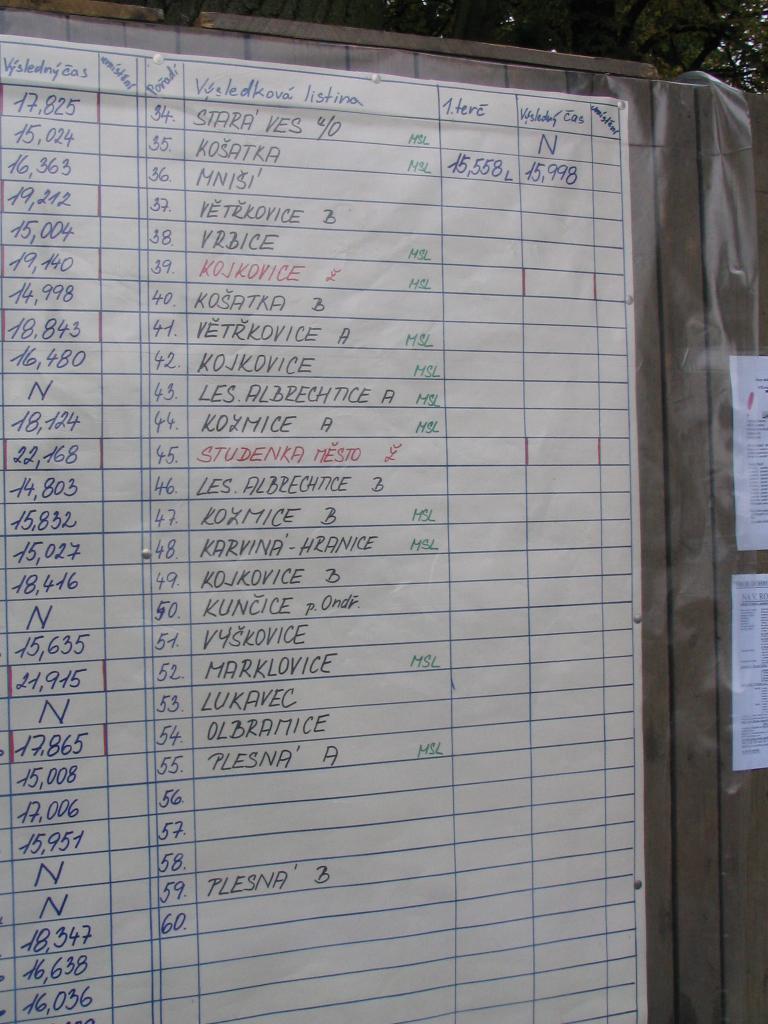 Výsledný čas umístění
17,825
15,024
16,363
19,212
15,004
19,140
14,998
18,843
16,480
N
18,124
22,168
14,803
15,832
15,027
18,416
N
15,635
21,915
N
17,865
15,008
17,006
15,951
N
N
18,347
16,638
16,036
Pořadí Výsledková listina 1. terč Výsledný čas umístění
34. STARÁ VES n/O MSL N
35. KOŠATKA MSL 15,558 L 15,998
36. MNIŠÍ
37. VĚTŘKOVICE B
38. VRBICE MSL
39. KOJKOVICE Ž MSL
40. KOŠATKA B
41. VĚTŘKOVICE A MSL
42. KOJKOVICE MSL
43. LES. ALBRECHTICE A MSL
44. KOZMICE A MSL
45. STUDENKA MĚSTO Ž
46. LES. ALBRECHTICE B
47. KOZMICE B MSL
48. KARVINÁ-HRANICE MSL
49. KOJKOVICE B
50. KUNČICE p. Ondř.
51. VÝŠKOVICE
52. MARKLOVICE MSL
53. LUKAVEC
54. OLBRAMICE
55. PLESNÁ A MSL
56.
57.
58.
59. PLESNÁ B
60.